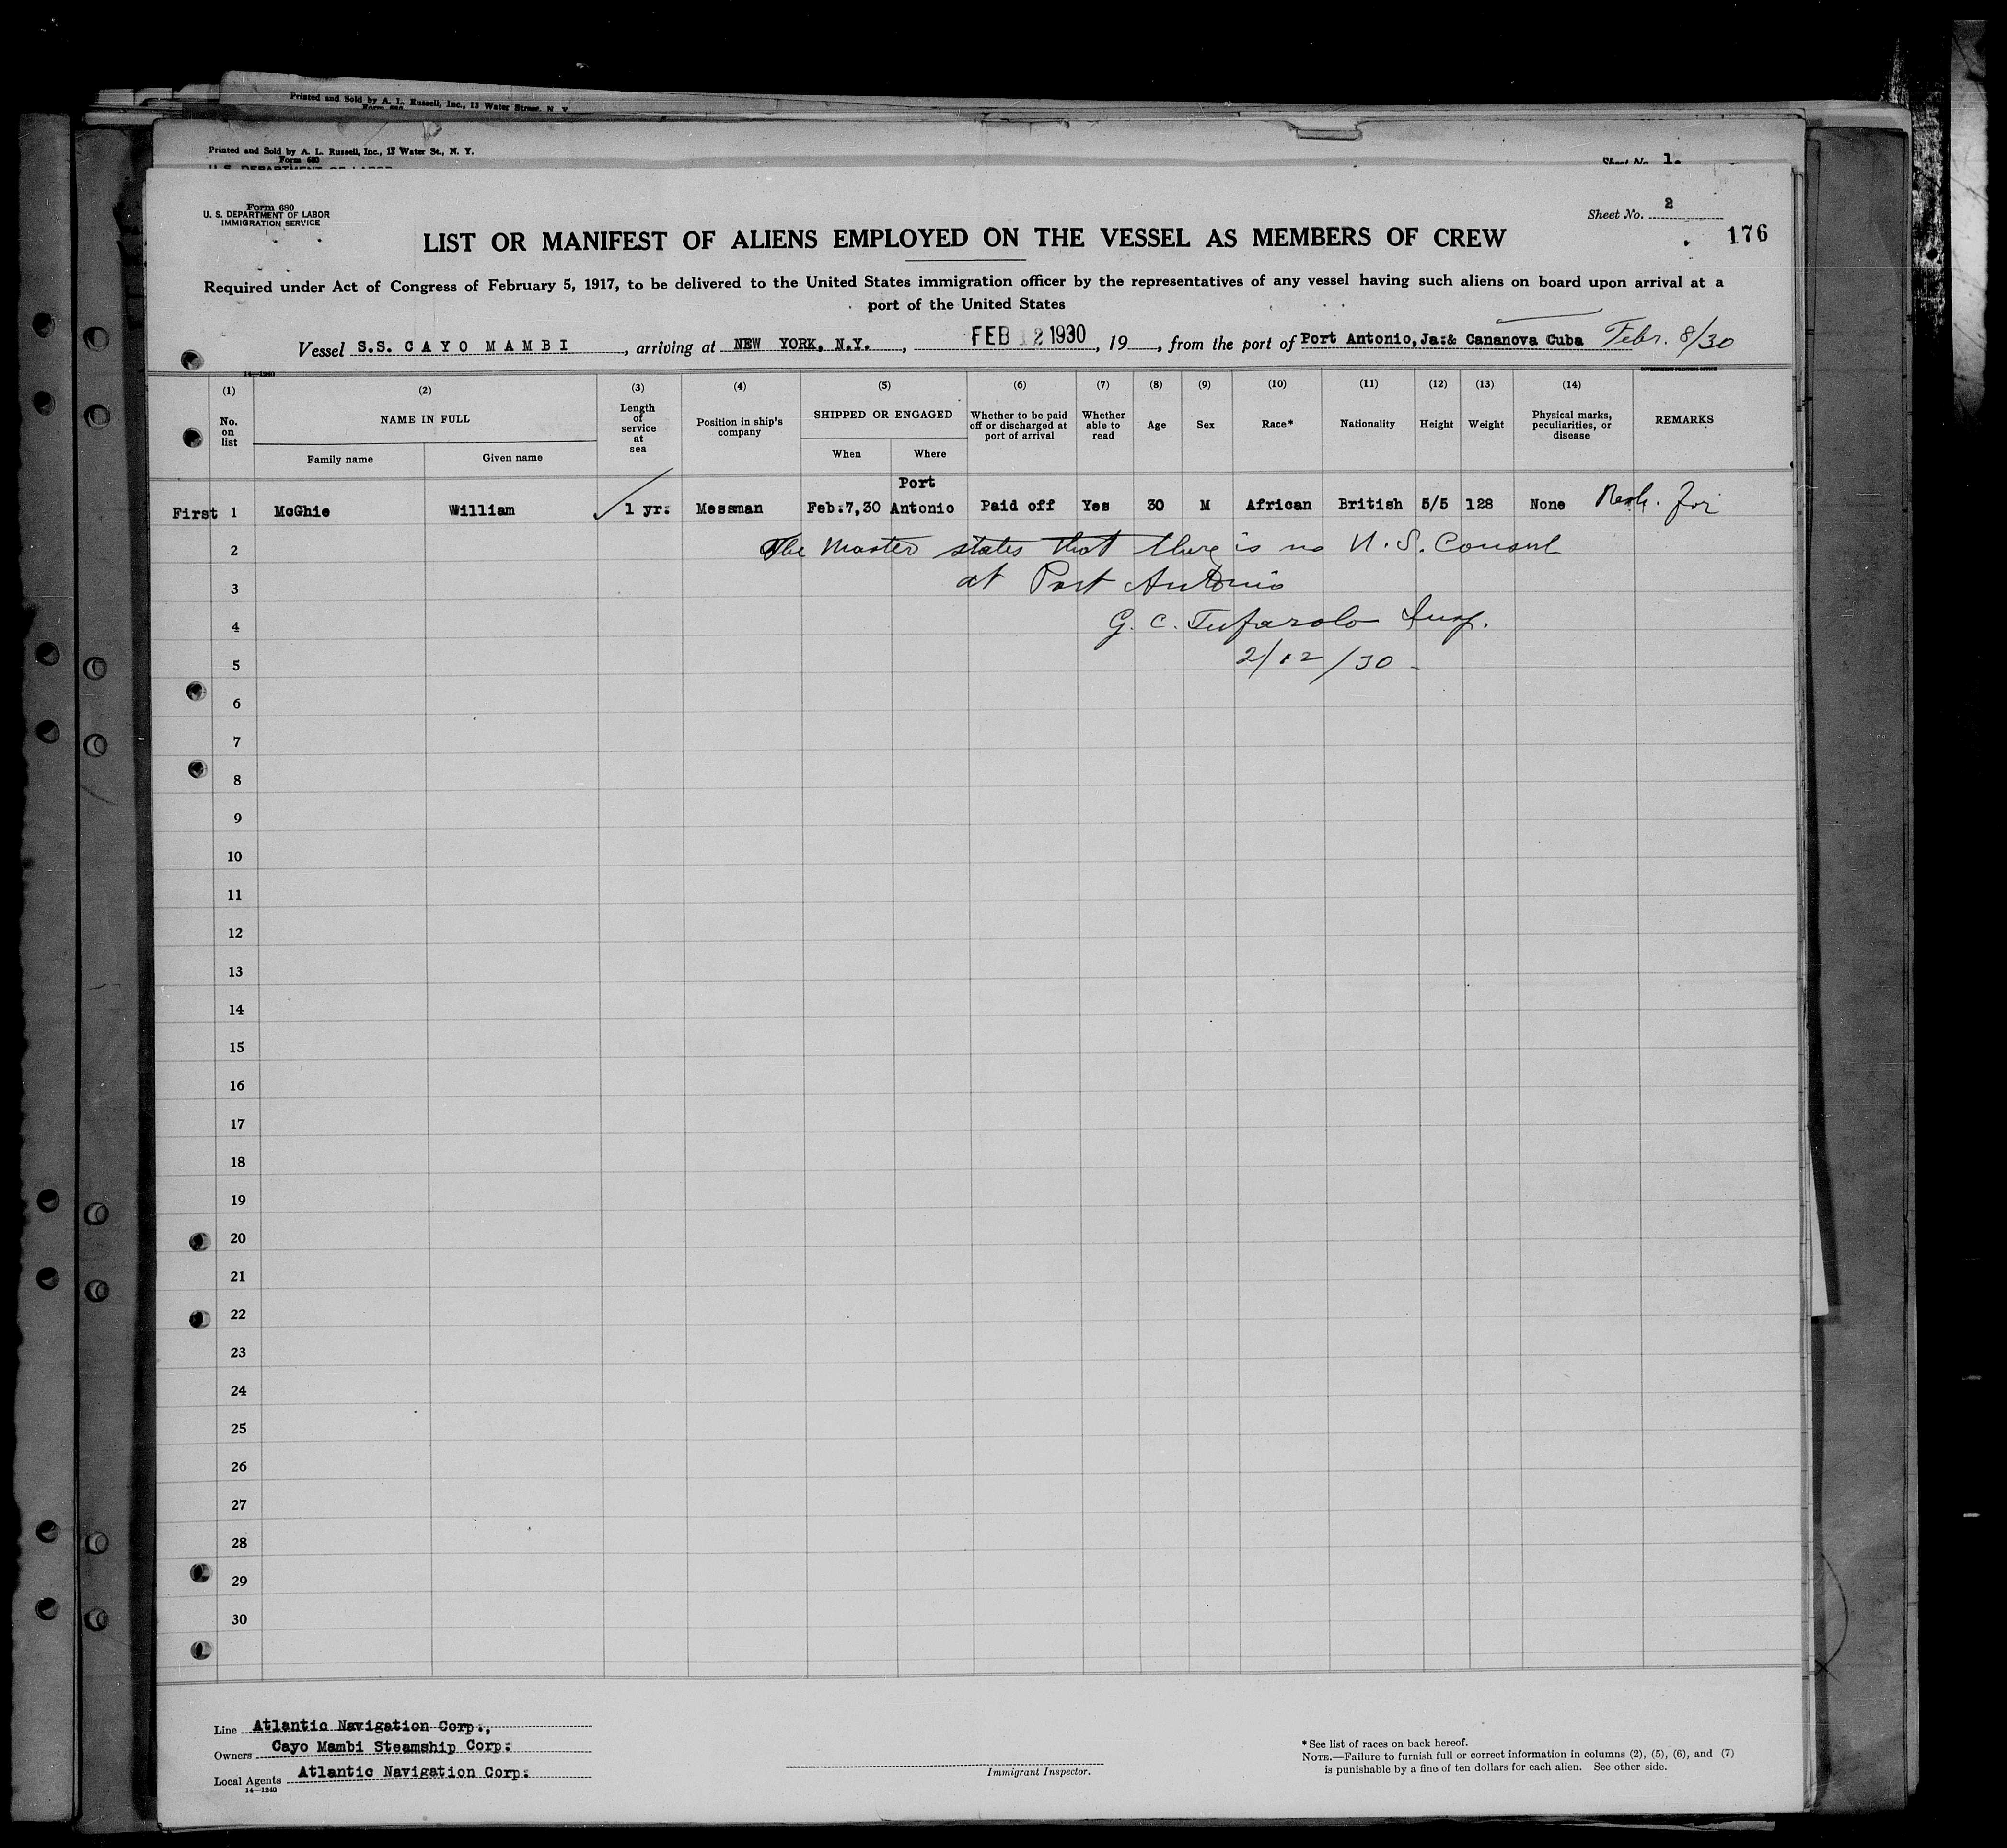 Printed and Sold by A. L. Russell, Inc., 13 Water Street, N. Y.
Form 680
Printed and Sold by A. L. Russell, Inc., 13 Water St., N. Y.
Form 680
U. S. DEPARTMENT OF LABOR
Sheet No. 1.
Form 680
U. S. DEPARTMENT OF LABOR
IMMIGRATION SERVICE
Sheet No. 2
176
LIST OR MANIFEST OF ALIENS EMPLOYED ON THE VESSEL AS MEMBERS OF CREW
Required under Act of Congress of February 5, 1917, to be delivered to the United States immigration officer by the representatives of any vessel having such aliens on board upon arrival at a
port of the United States
Vessel S.S. CAYO MAMBI, arriving at NEW YORK, N.Y., FEB 12 1930, 19, from the port of Port Antonio, Ja:& Cananova Cuba Febr. 8/30
14—1240
GOVERNMENT PRINTING OFFICE
(1) (2) (3) (4) (5) (6) (7) (8) (9) (10) (11) (12) (13) (14)
No. on list NAME IN FULL Length of service at sea Position in ship's company SHIPPED OR ENGAGED Whether to be paid off or discharged at port of arrival Whether able to read Age Sex Race* Nationality Height Weight Physical marks, peculiarities, or disease REMARKS
Family name Given name When Where
First 1 McGhie William 1 yr: Messman Feb:7,30 Port Antonio Paid off Yes 30 M African British 5/5 128 None
2 The Master states that there is no U.S. Consul
3 at Port Antonio
4 G. C. Tufarolo Insp.
5 2/12/30
6
7
8
9
10
11
12
13
14
15
16
17
18
19
20
21
22
23
24
25
26
27
28
29
30
Line Atlantic Navigation Corp:,
Owners Cayo Mambi Steamship Corp:
Local Agents Atlantic Navigation Corp:
14—1240
Immigrant Inspector.
* See list of races on back hereof.
NOTE.—Failure to furnish full or correct information in columns (2), (5), (6), and (7)
is punishable by a fine of ten dollars for each alien. See other side.